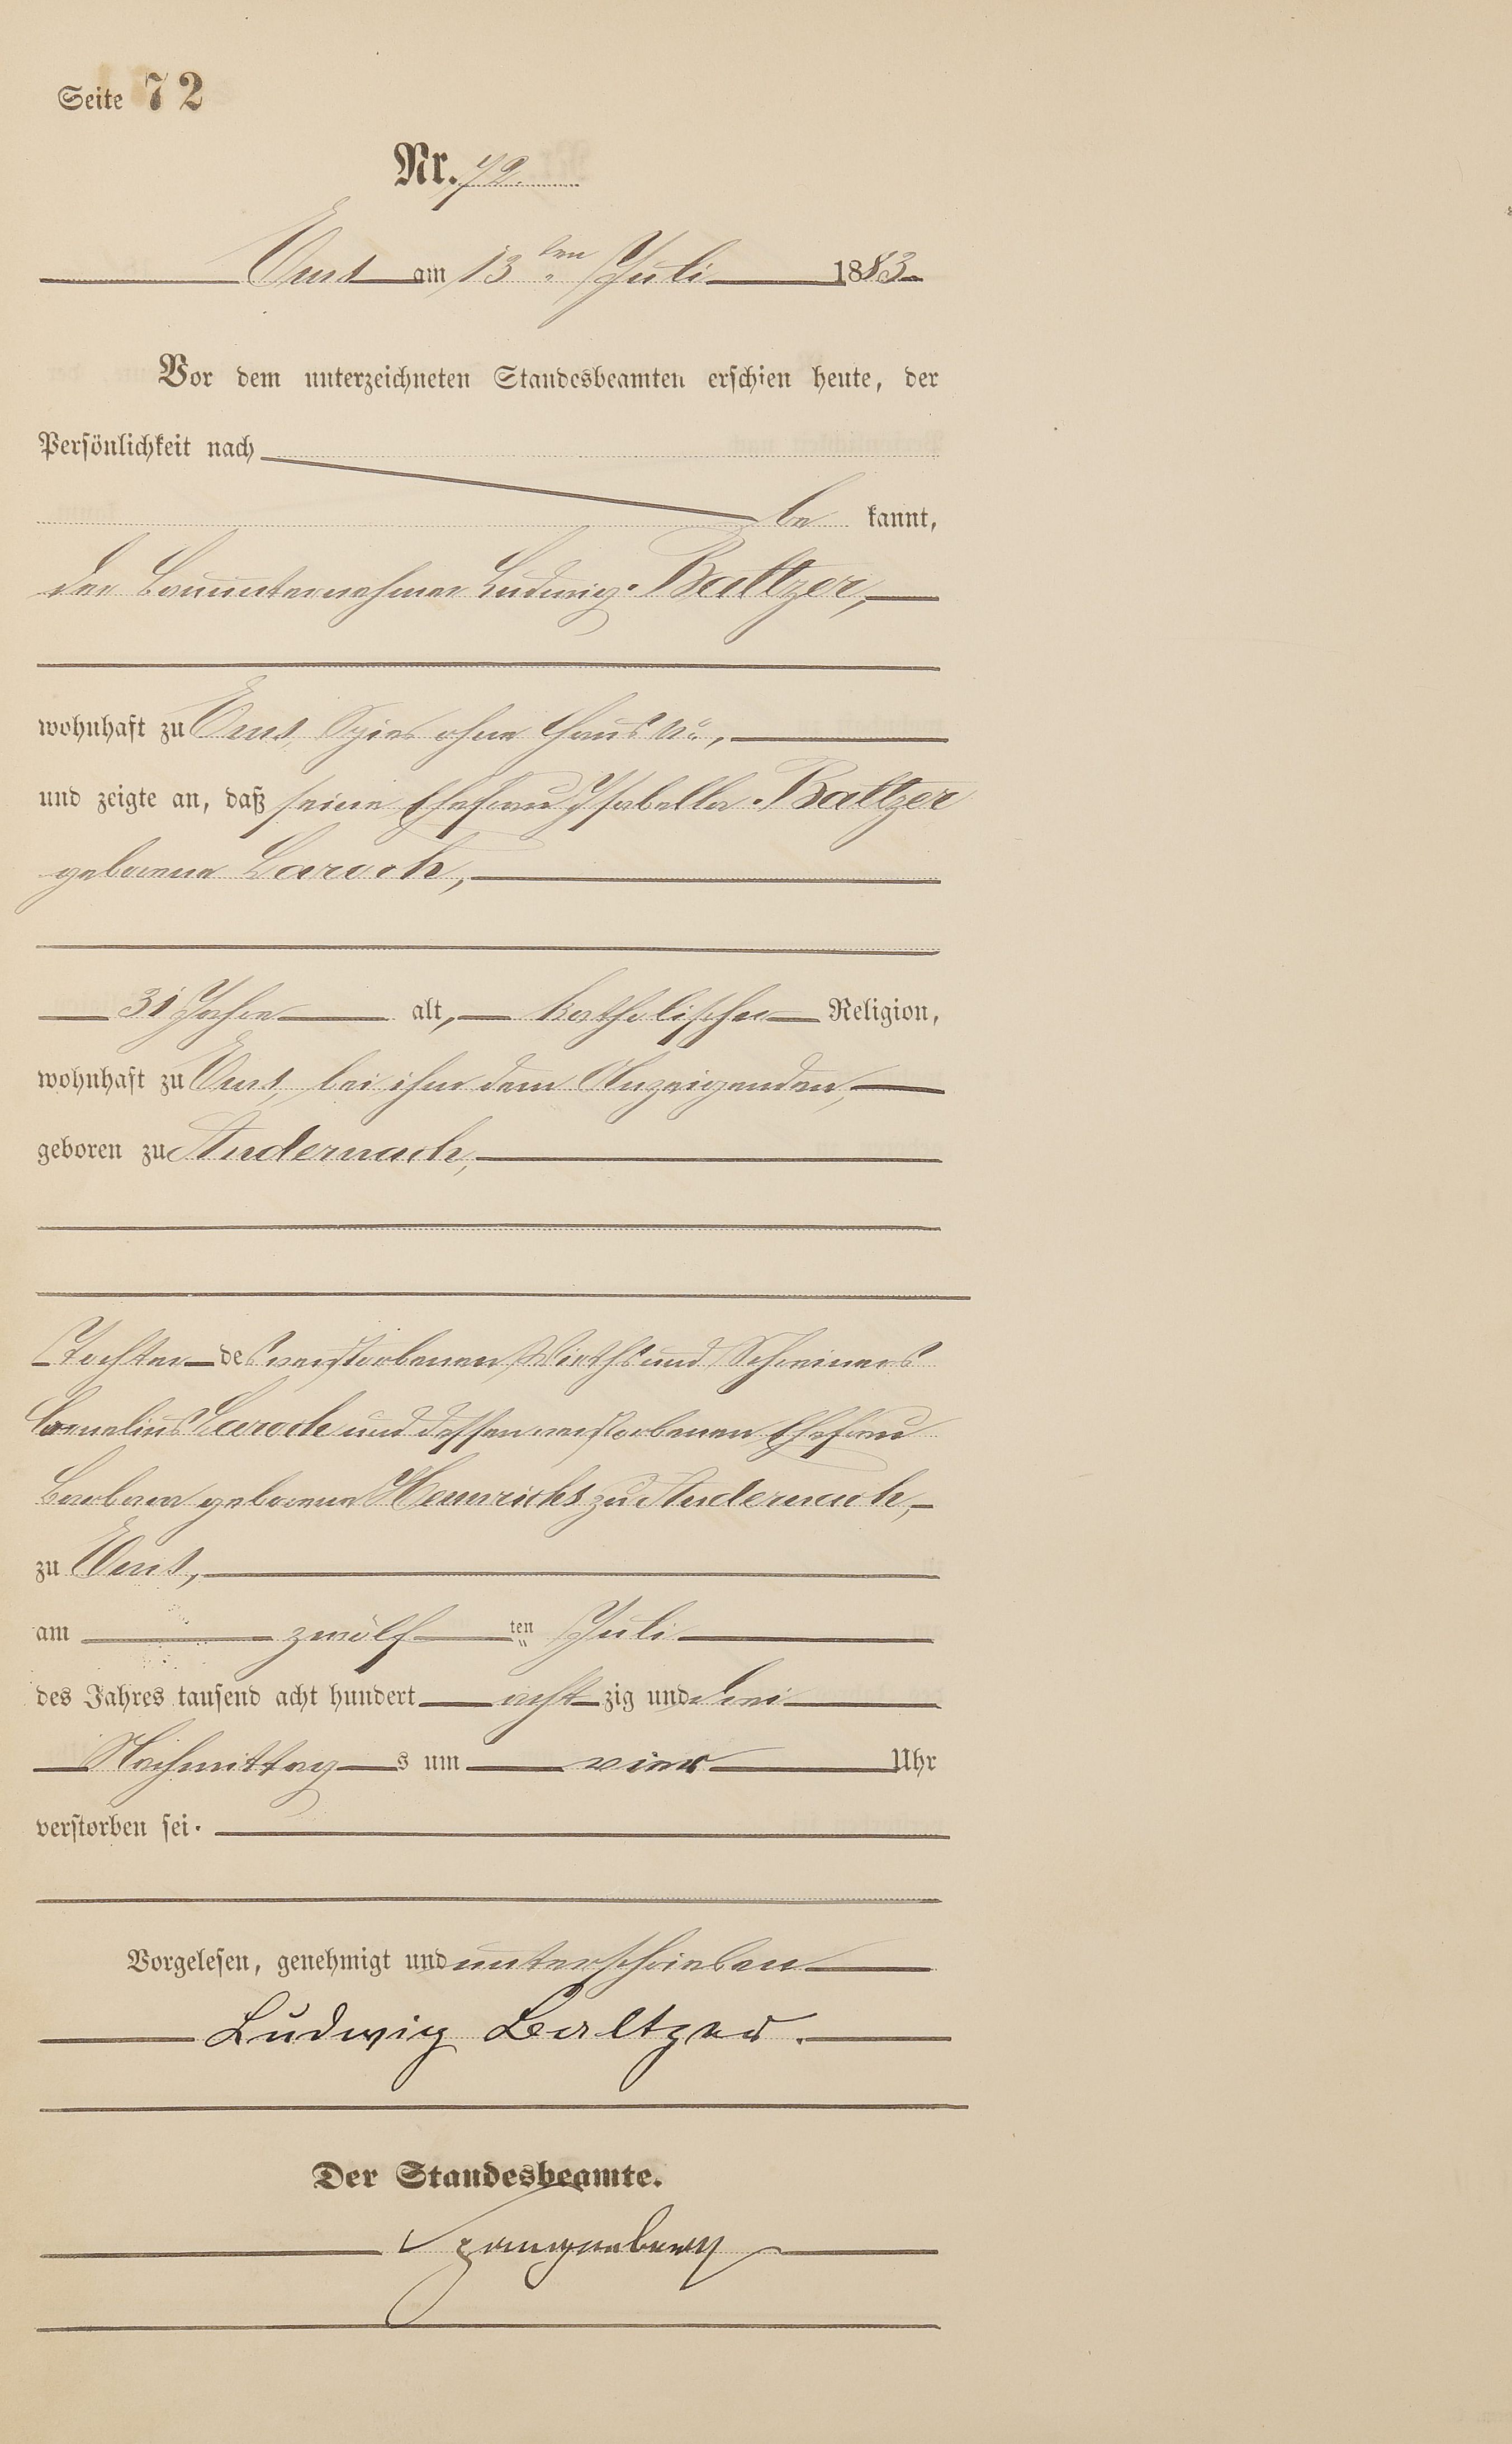 Seite 72
Nr. 72.
Ems am 13ten Juli 1883.
Vor dem unterzeichneten Standesbeamten erschien heute, der
Persönlichkeit nach
be kannt,
der Bauunternehmer Ludwig Baltzer,
wohnhaft zu Ems, Spies ohne Haus No,
und zeigte an, daß seine Ehefrau Isabella Baltzer
geborene Laroch,
31 Jahre alt, katholischer Religion,
wohnhaft zu Ems, bei ihm dem Anzeigenden,
geboren zu Andernach,
Tochter des verstorbenen Wirths und Schreiners
Cornelius Laroch und dessen verstorbenen Ehefrau
Barbara geborene zu Andernach,
zu Ems,
am zwölf ten Juli
des Jahres tausend acht hundert acht zig und drei
Nachmittag s um vier Uhr
verstorben sei.
Vorgelesen, genehmigt und unterschrieben
Ludwig Baltzer.
Der Standesbeamte.
Spangenberg